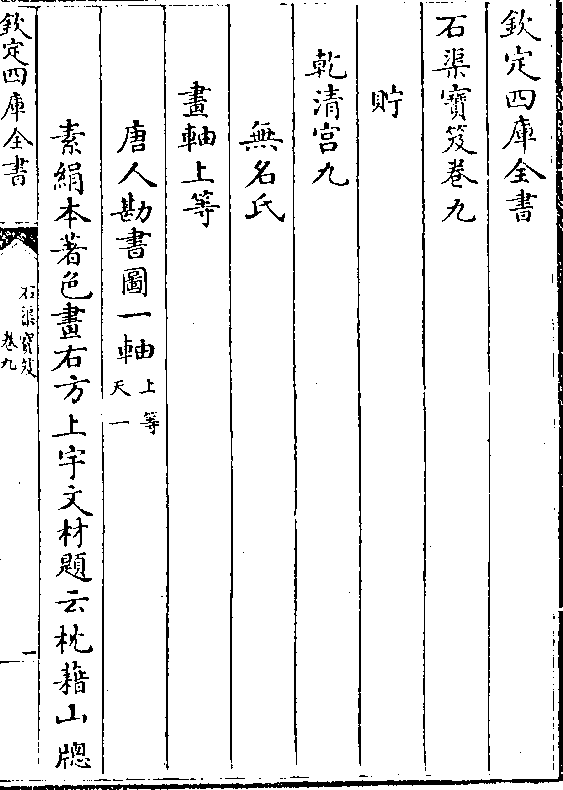 欽定四庫全書
石渠寶笈卷九
貯
乾清宫九
無名氏
畫軸上等
唐人勘書圖一軸 上等
天一
素絹本著色畫右方上宇文材題云枕藉山牕
欽定四庫全書
石渠寶笈
卷九
一